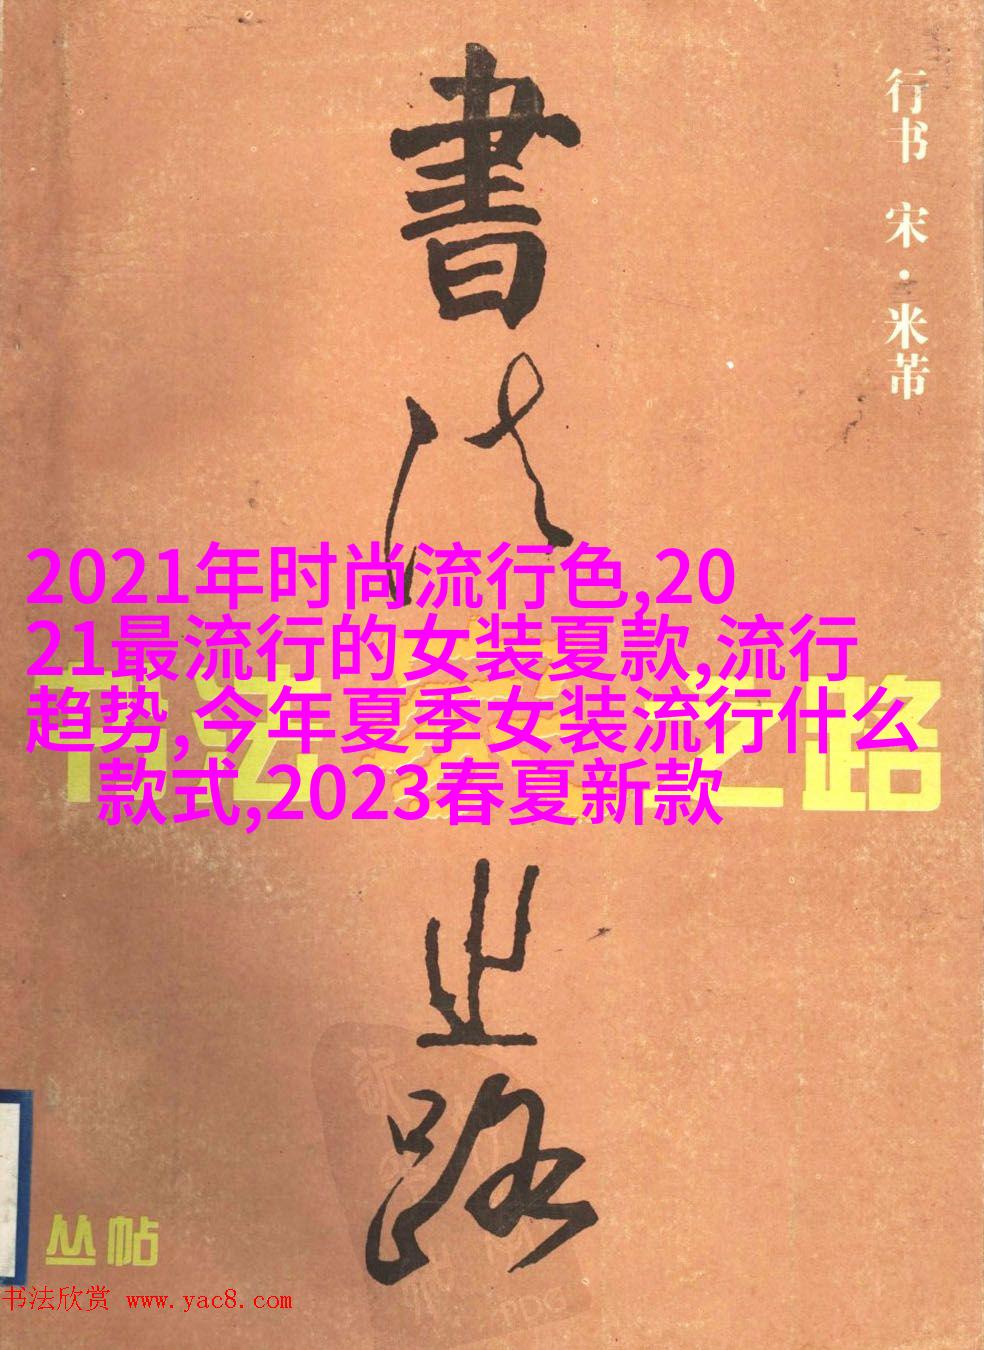 行书 宋·米芾
書法
2021年时尚流行色,20
21最流行的女装夏款,流行
趋势,今年夏季女装流行什么
款式,2023春夏新款
法之路
之路
丛帖
书法欣赏 www.yac8.com